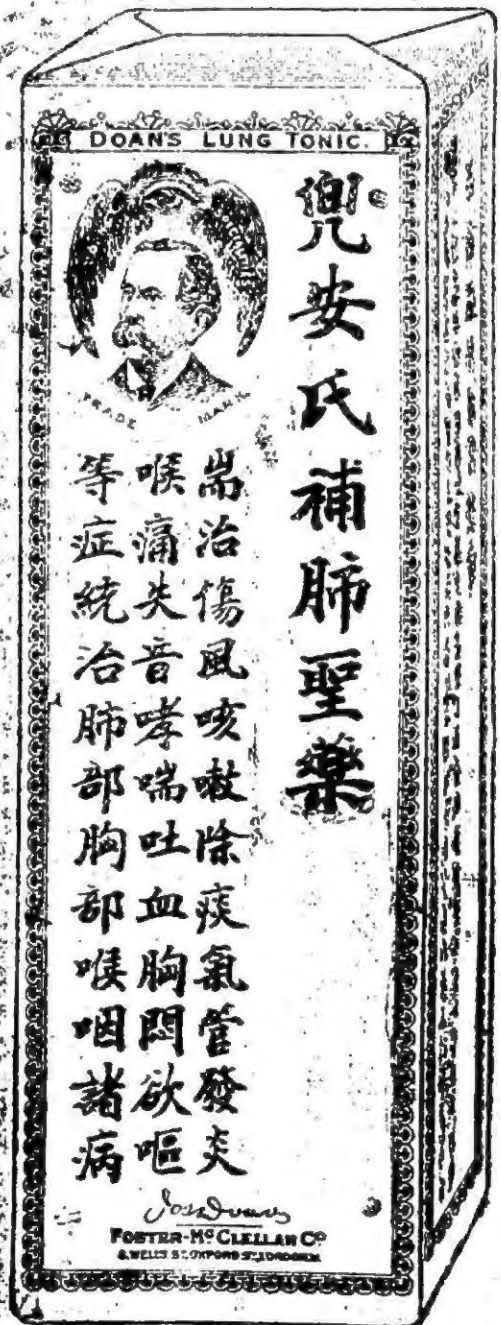 DOAN'S LUNG TONIC.
TRADE MARK
兜安氏補肺聖藥
耑治傷風咳嗽除痰氣管發炎
喉痛失音哮喘吐血胸悶欲嘔
等症統治肺部胸部喉咽諸病
FOSTER-McCLELLAN CO
8 WELLS ST. OXFORD ST. LONDON.